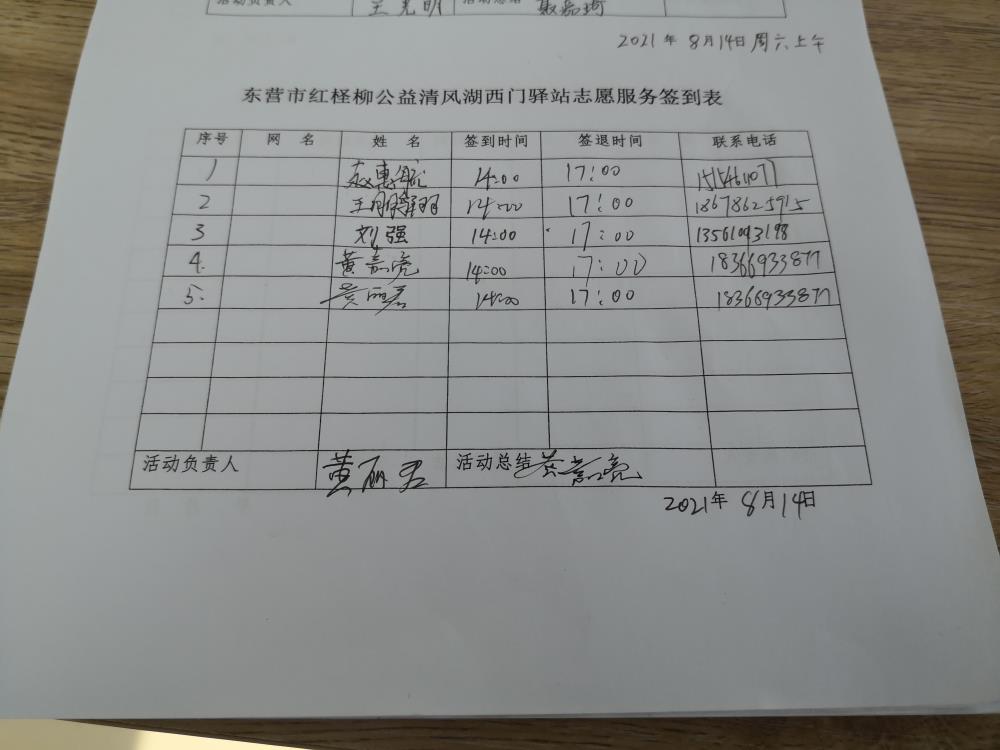 活动负责人 王光明 活动总结
2021年 8月14日 周六上午
东营市红柽柳公益清风湖西门驿站志愿服务签到表
序号 网 名 姓 名 签到时间 签退时间 联系电话
1 14:00 17:00
2 14:00 17:00 18678625915
3 刘强 14:00 17:00
4. 黄嘉亮 14:00 17:00 18366933877
5. 黄丽君 14:00 17:00 18366933877
活动负责人 黄丽君 活动总结 黄嘉亮
2021年 8月14日